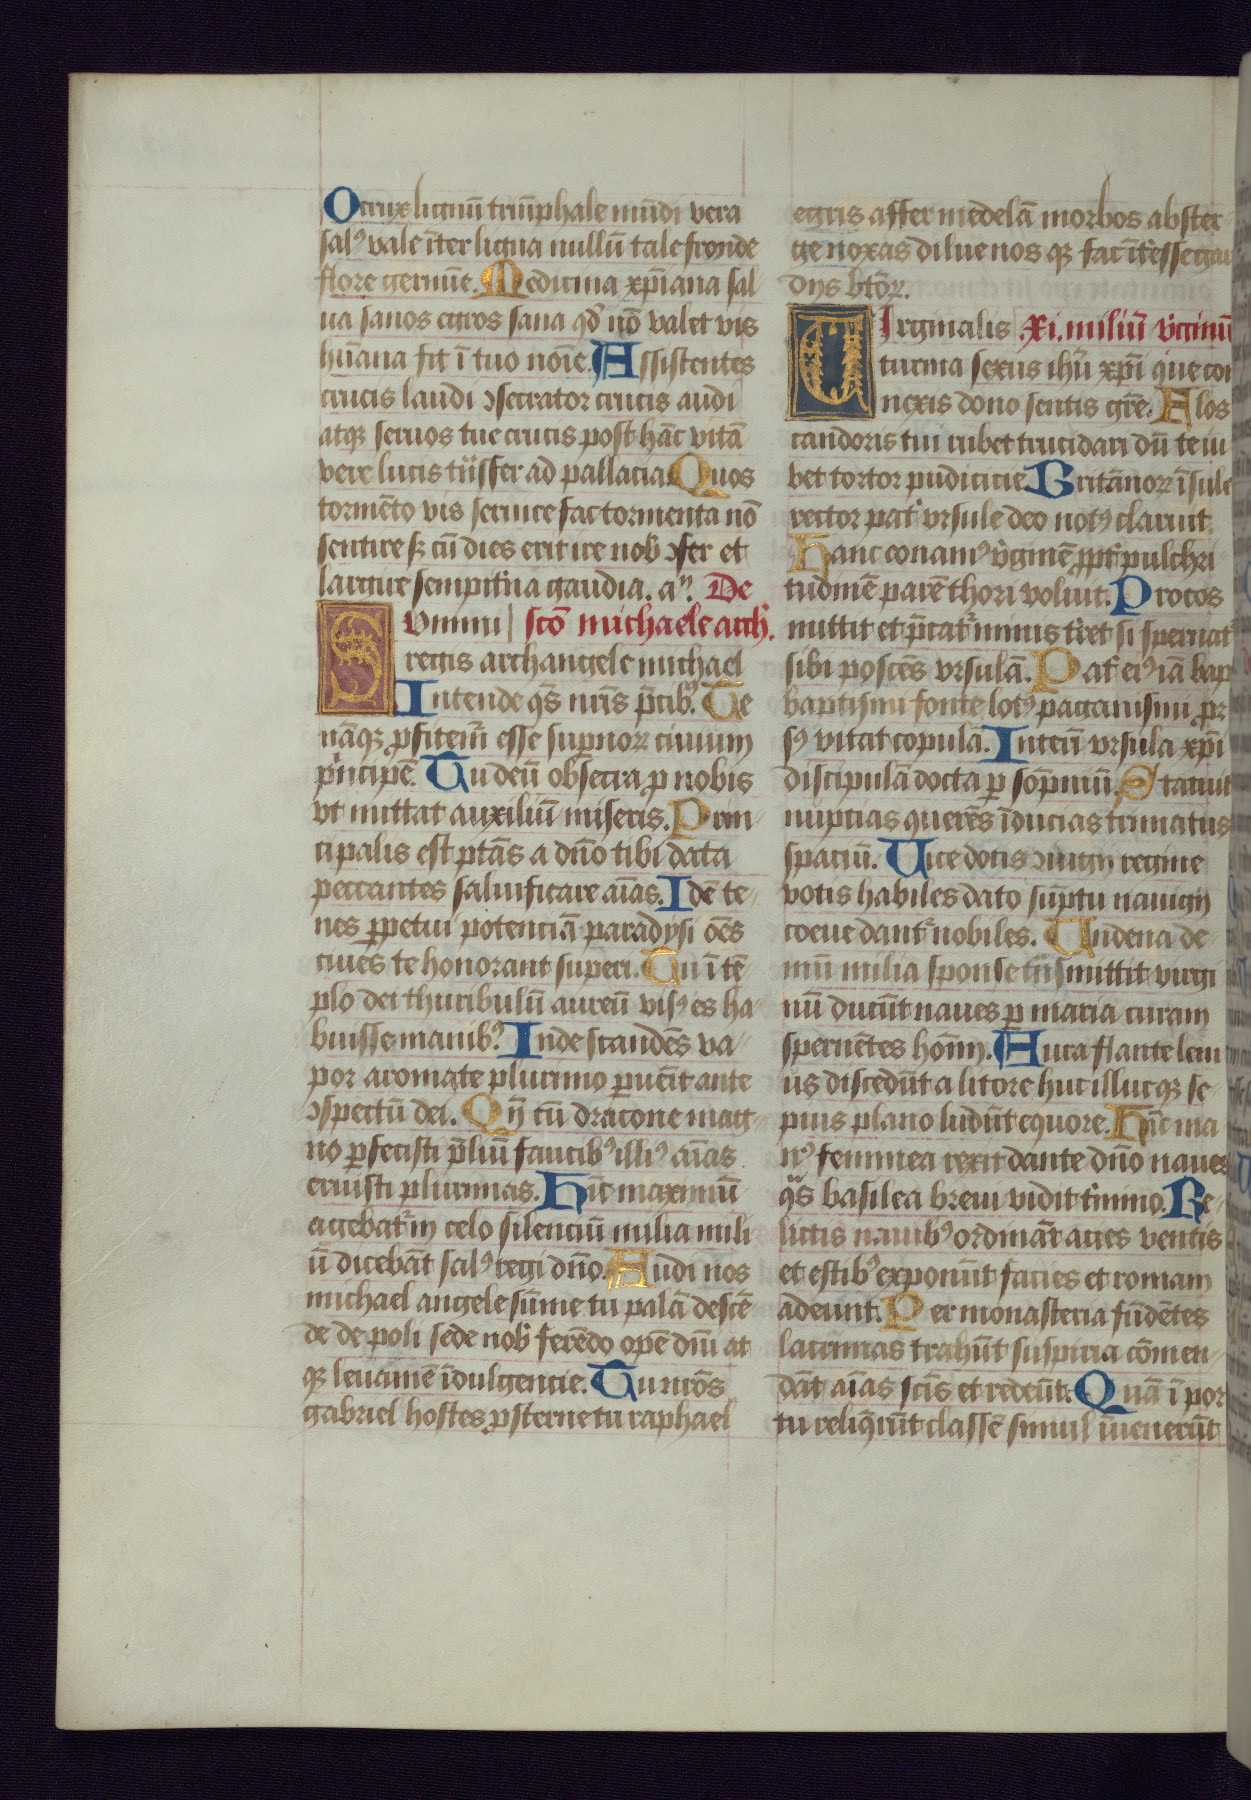 O crux lignū triūphale mūdi vera
salꝰ vale īter ligna nullū tale fronde
flore germīe. Medicina xp̄iana sal
ua sanos egros sana qd̓ nō valet vis
hūana fit ī tuo noīe. Assistentes
crucis laudi ɔsecrator crucis audi
atqꝫ seruos tue crucis post hāc vitā
vere lucis trāsfer ad pallacia Quos
tormēto vis seruire fac tormenta nō
sentire sꝫ cū dies erit ire nob̓ ɔfer et
largire sempit̓na gaudia. aⁿ. De
Vmmi scō michaele arch̓.
regis archangele michael
Intende qs̄ nr̄is p̄cibꝰ. Te
nāqꝫ ꝓfitem̓r esse sup̓noꝝ ciuium
p̓ncipē. Tu deū obsecra ꝓ nobis
vt mittat auxiliū miseris. Prin
cipalis est ptās a dn̄o tibi data
peccantes saluificare aīas. Idē te-
nes ꝑpetui potenciā paradysi oēs
ciues te honorant superi. Tu ī tē
plo dei thuribulū aureū visꝰ es ha
buisse manibꝰ. Inde scandēs va-
por aromate plurimo ꝑuēit ante
ɔspectū dei. Qn̄ cū dracone mag-
no ꝑfecisti p̄liū faucibꝰ illiꝰ aīas
eruisti plurimas. Hīc maximū
agebat̓ in celo silenciū milia mili
ū dicebāt salꝰ regi dn̄o. Audi nos
michael angele sūme tu palā descē
de de poli sede nob̓ ferēdo opē dn̄i at
qꝫ leuamē īdulgencie. Tu nr̄os
gabriel hostes ꝓsterne tu raphael
egris affer medelā morbos abster-
ge noxas dilue nos qꝫ fac īt̓esse gau
dijs btō̄ꝝ.
Irginalis Xi. miliū v̓ginū
turma sexus ih̄u xp̄i que con
nexis dono sentis gr̄e. Flos
candoris tui rubet trucidari dū te iu
bet tortor pudicicie Britānoꝝ īsule
rector pat̓ vrsule deo notꝰ claruit.
Hanc conanꝰ v̓ginē ꝓpt̓ pulchri
tudinē parē thori voluit. Procos
mittit et p̄cat̓ minis t̓ret si spernat̓
sibi poscēs vrsulā. Pat̓ eiꝰ iā bap
baptismi fonte lotꝰ paganismi ꝓr
sꝰ vitat copulā. Interī vrsula xp̄i
discipulā docta ꝑ sōpniū. Statuit
nupcias querēs īducias trinatus
spaciū. Vice dotis ɔiugij regine
votis habiles dato sūptu nauigij
coeue dant̓ nobiles. Undena de-
mū milia sponse trāsmittit virgi
nū ducūt naues ꝑ maria curam
spernētes hom̄. Aura flante leni
us discedūt a litore huc illuc qꝫ se-
pius plano ludūt equore. Hāc ma
nꝰ feminea rexit dante dn̄o naues
qs̄ basilea breui vidit t̓mino. Re-
lictis nauibꝰ ordināt acies ventis
et estibꝰ exponūt facies et romam
adeunt. Per monasteria fūdētes
lacrimas trahūt suspiria cōmen-
dāt aīas scīs et redeūt. Quā ī por
tu reliq̄rūt classē simul īuenerūt